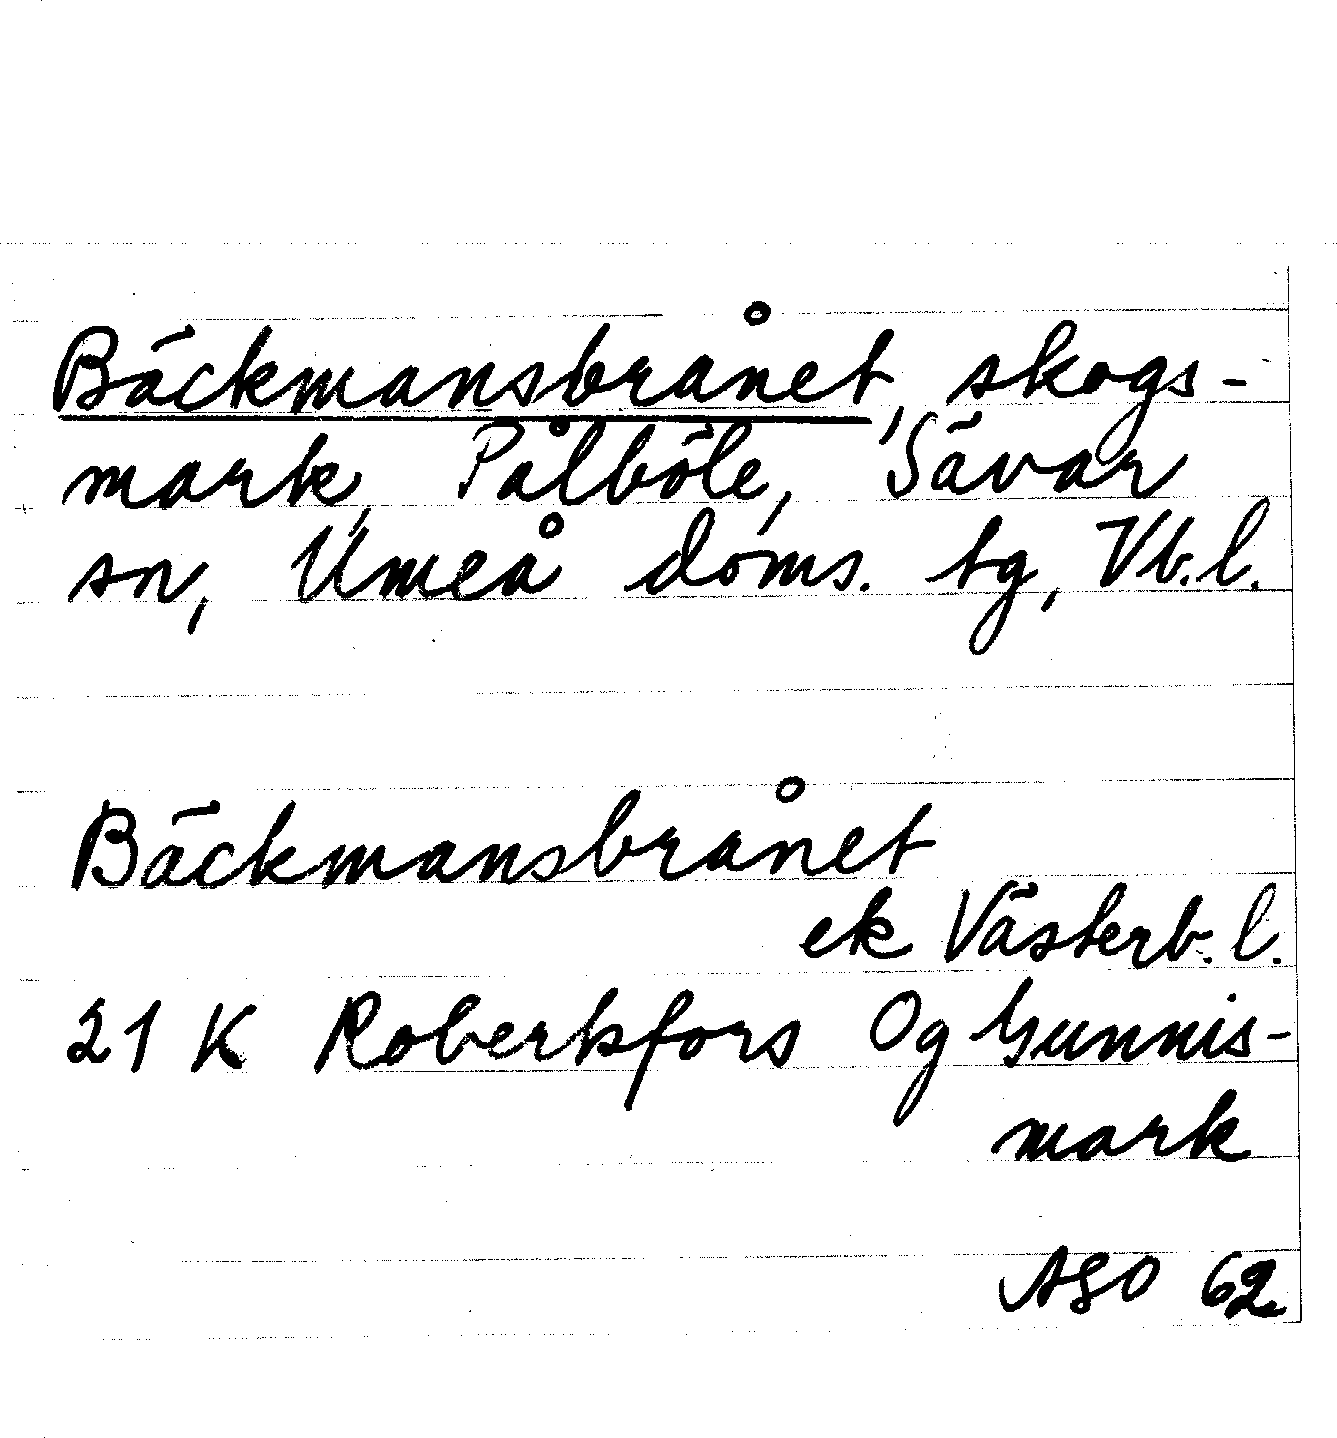 Bäckmansbrånet, skogs-
mark, Pålböle, Sävar
sn, Umeå doms. tg, Vb.l.
Bäckmansbrånet
ek Västerb. l.
21 K Robertsfors Og Gunnis-
mark
ASO 62.